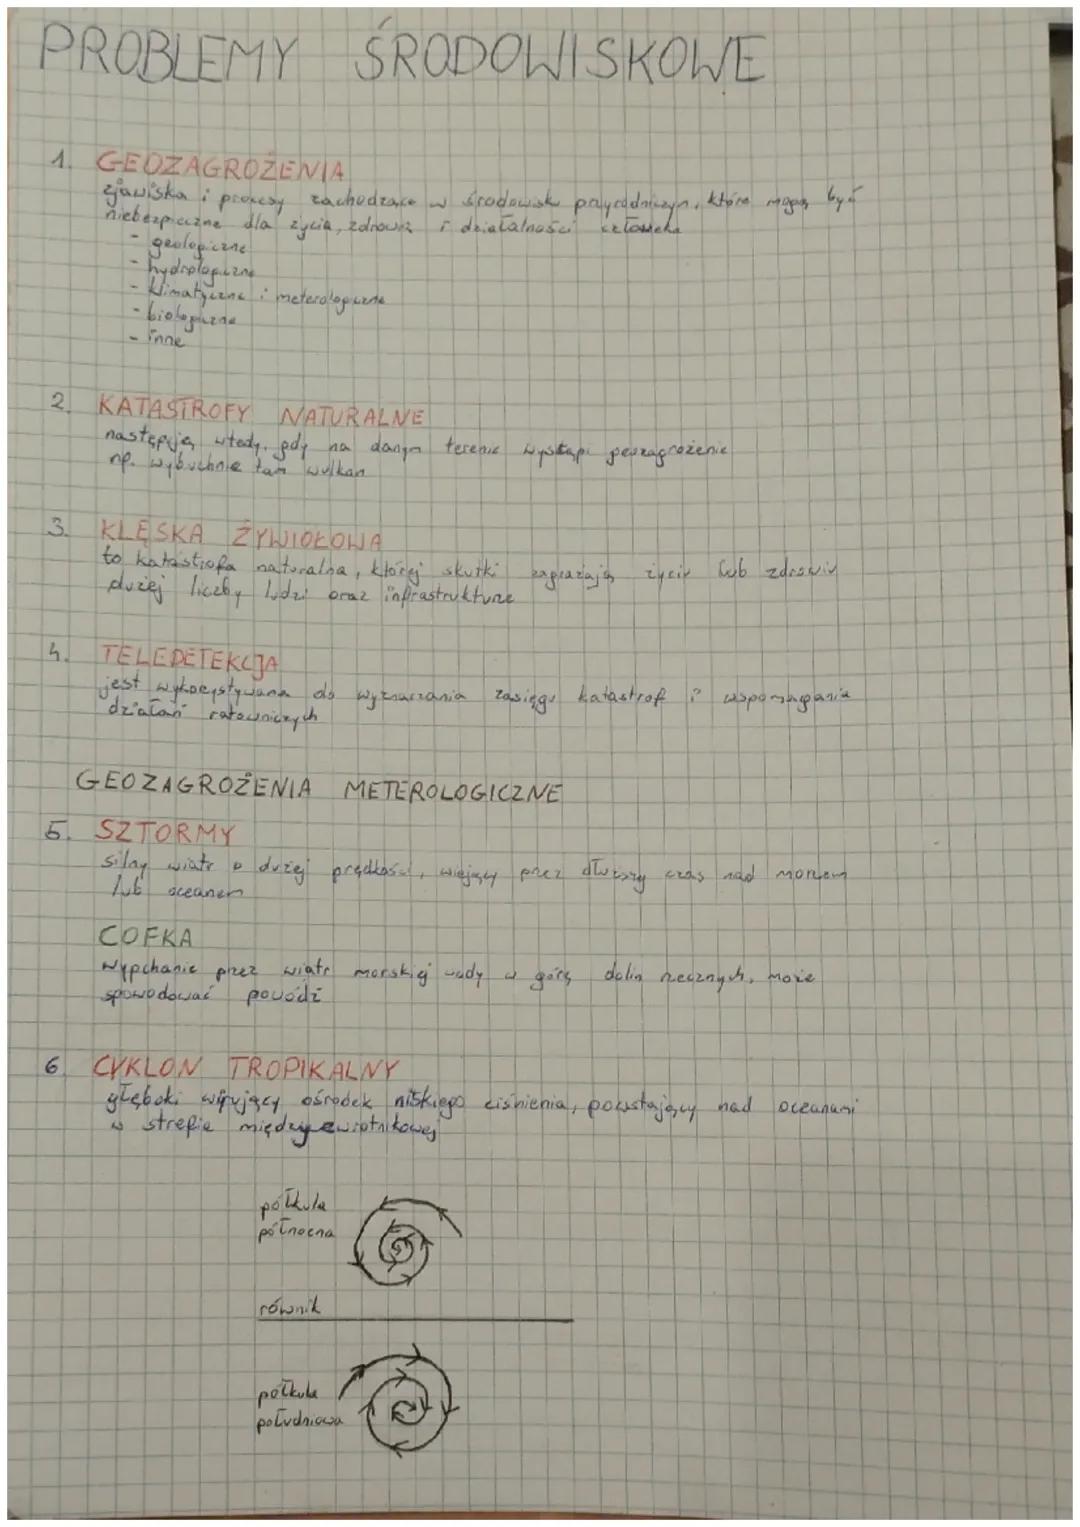 PROBLEMY ŚRODOWISKOWE
1. GEOZAGROŻENIA
zjawiska i procesy zachodzące w środowisku przyrodniczym, które mogą być
niebezpieczne dla życia, zdrowia i działalności człowieka
- geologiczne
- hydrologiczne
- klimatyczne i meterologiczne
- biologiczne
- inne
2. KATASTROFY NATURALNE
następują wtedy, gdy na danym terenie wystąpi geozagrożenie
np. wybuchnie tam wulkan
3. KLĘSKA ŻYWIOŁOWA
to katastrofa naturalna, której skutki zagrażają życiu lub zdrowiu
dużej liczby ludzi oraz infrastrukturze
4. TELEDETEKCJA
jest wykorzystywana do wyznaczania zasięgu katastrof i wspomagania
działań ratowniczych
GEOZAGROŻENIA METEROLOGICZNE
5. SZTORMY
silny wiatr o dużej prędkości, wiejący przez dłuższy czas nad morzem
lub oceanem
COFKA
wypchanie przez wiatr morskiej wody w górę dolin rzecznych, może
spowodować powódź
6. CYKLON TROPIKALNY
głęboki wirujący ośrodek niskiego ciśnienia, powstający nad oceanami
w strefie międzyzwrotnikowej
półkula
północna
równik
półkula
południowa